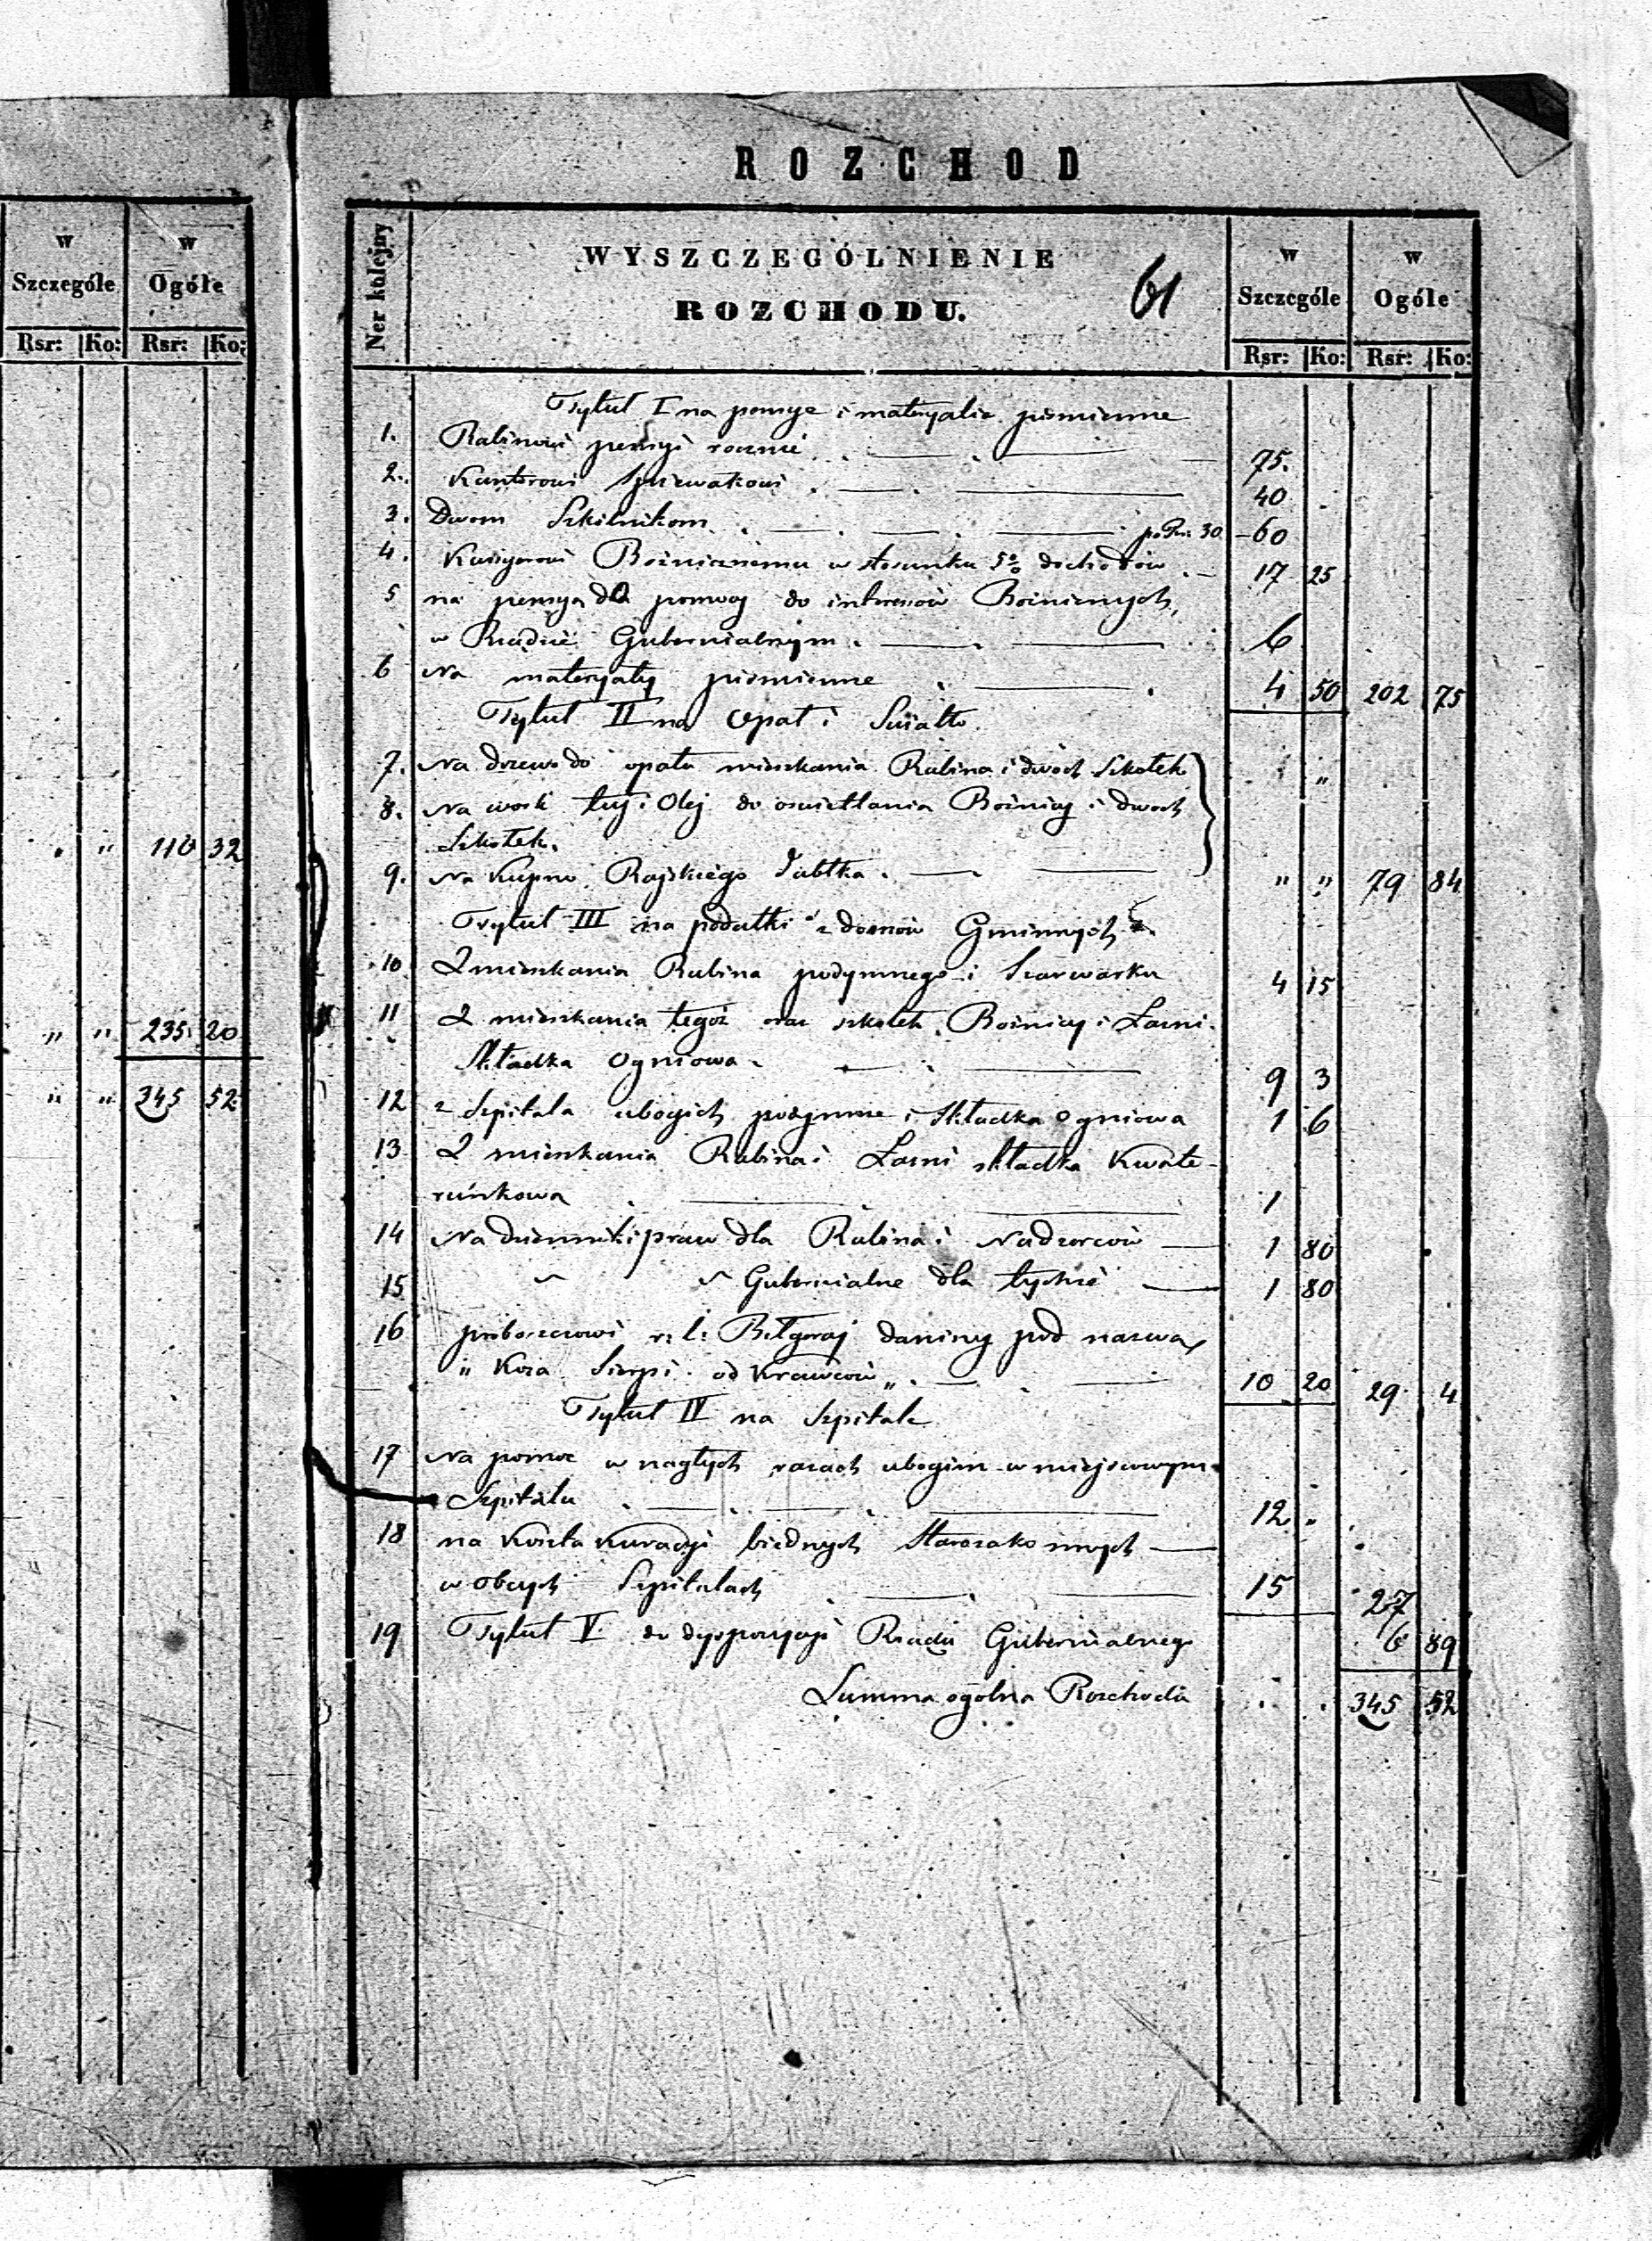 w Szczególe w Ogóle
Rsr: Ko: Rsr: Ko:
" 110 32
" " 235 20
" " 345 52
ROZCHOD
Ner kolejny
WYSZCZEGÓLNIENIE
ROZCHODU.
61
w Szczególe w Ogóle
Rsr: Ko: Rsr: Ko:
Tytuł I na pensye i materyalia piśmienne
1. Rabinowi pensyi rocznie 75.
2. Kantorowi Spiewakowi 40
3. Dwom Szkolnikom po Rsr 30 60
4. Kassyerowi Bożnicznemu w stosunku 5% dochodów 17 25
5 na pensya dla pomocy do interesów Bożnicznych,
w Rządzie Gubernialnym 6
6 Na materyały piśmienne 4 50 202 75
Tytuł II na Opał i Swiatło.
7. Na drzewo do opału mieszkania Rabina i dwóch Szkołek "
8. Na wosk łuj i Olej do oswietlania Bożnicy i dwoch
Szkołek.
9. Na Kupno Rajskiego Jabłka " " 79 84
Tytuł III na podatki z domów Gminnych
10 Z mieszkania Rabina podymnego i Szarwarku 4 15
11 Z mieszkania tegoż oraz szkołek Bożnicy i Łazni
Składka Ogniowa 9 3
12 z Szpitala ubogich podymne i Składka Ogniowa 1 6
13 Z mieszkania Rabina i Łazni składka Kwate-
runkowa 1
14 Na dzienniki praw dla Rabina i Nadzorców 1 80
15 " " Gubernialne dla tychże 1 80
16 proboszczowi r: l: Biłgoraj daniny pod nazwą
" Koza Sierpi od Krawców " 10 20 29 4
Tytuł IV na Szpitale
17 Na pomoc w nagłych razach ubogim w miejscowym
Szpitalu 12 "
18 na Koszta Kuracyi biednych Starozakonnych
w obcych Szpitalach 15 27
19 Tytuł V do dyspozycyi Rządu Gubernialnego 6 89
Summa ogólna Rozchodu 345 52